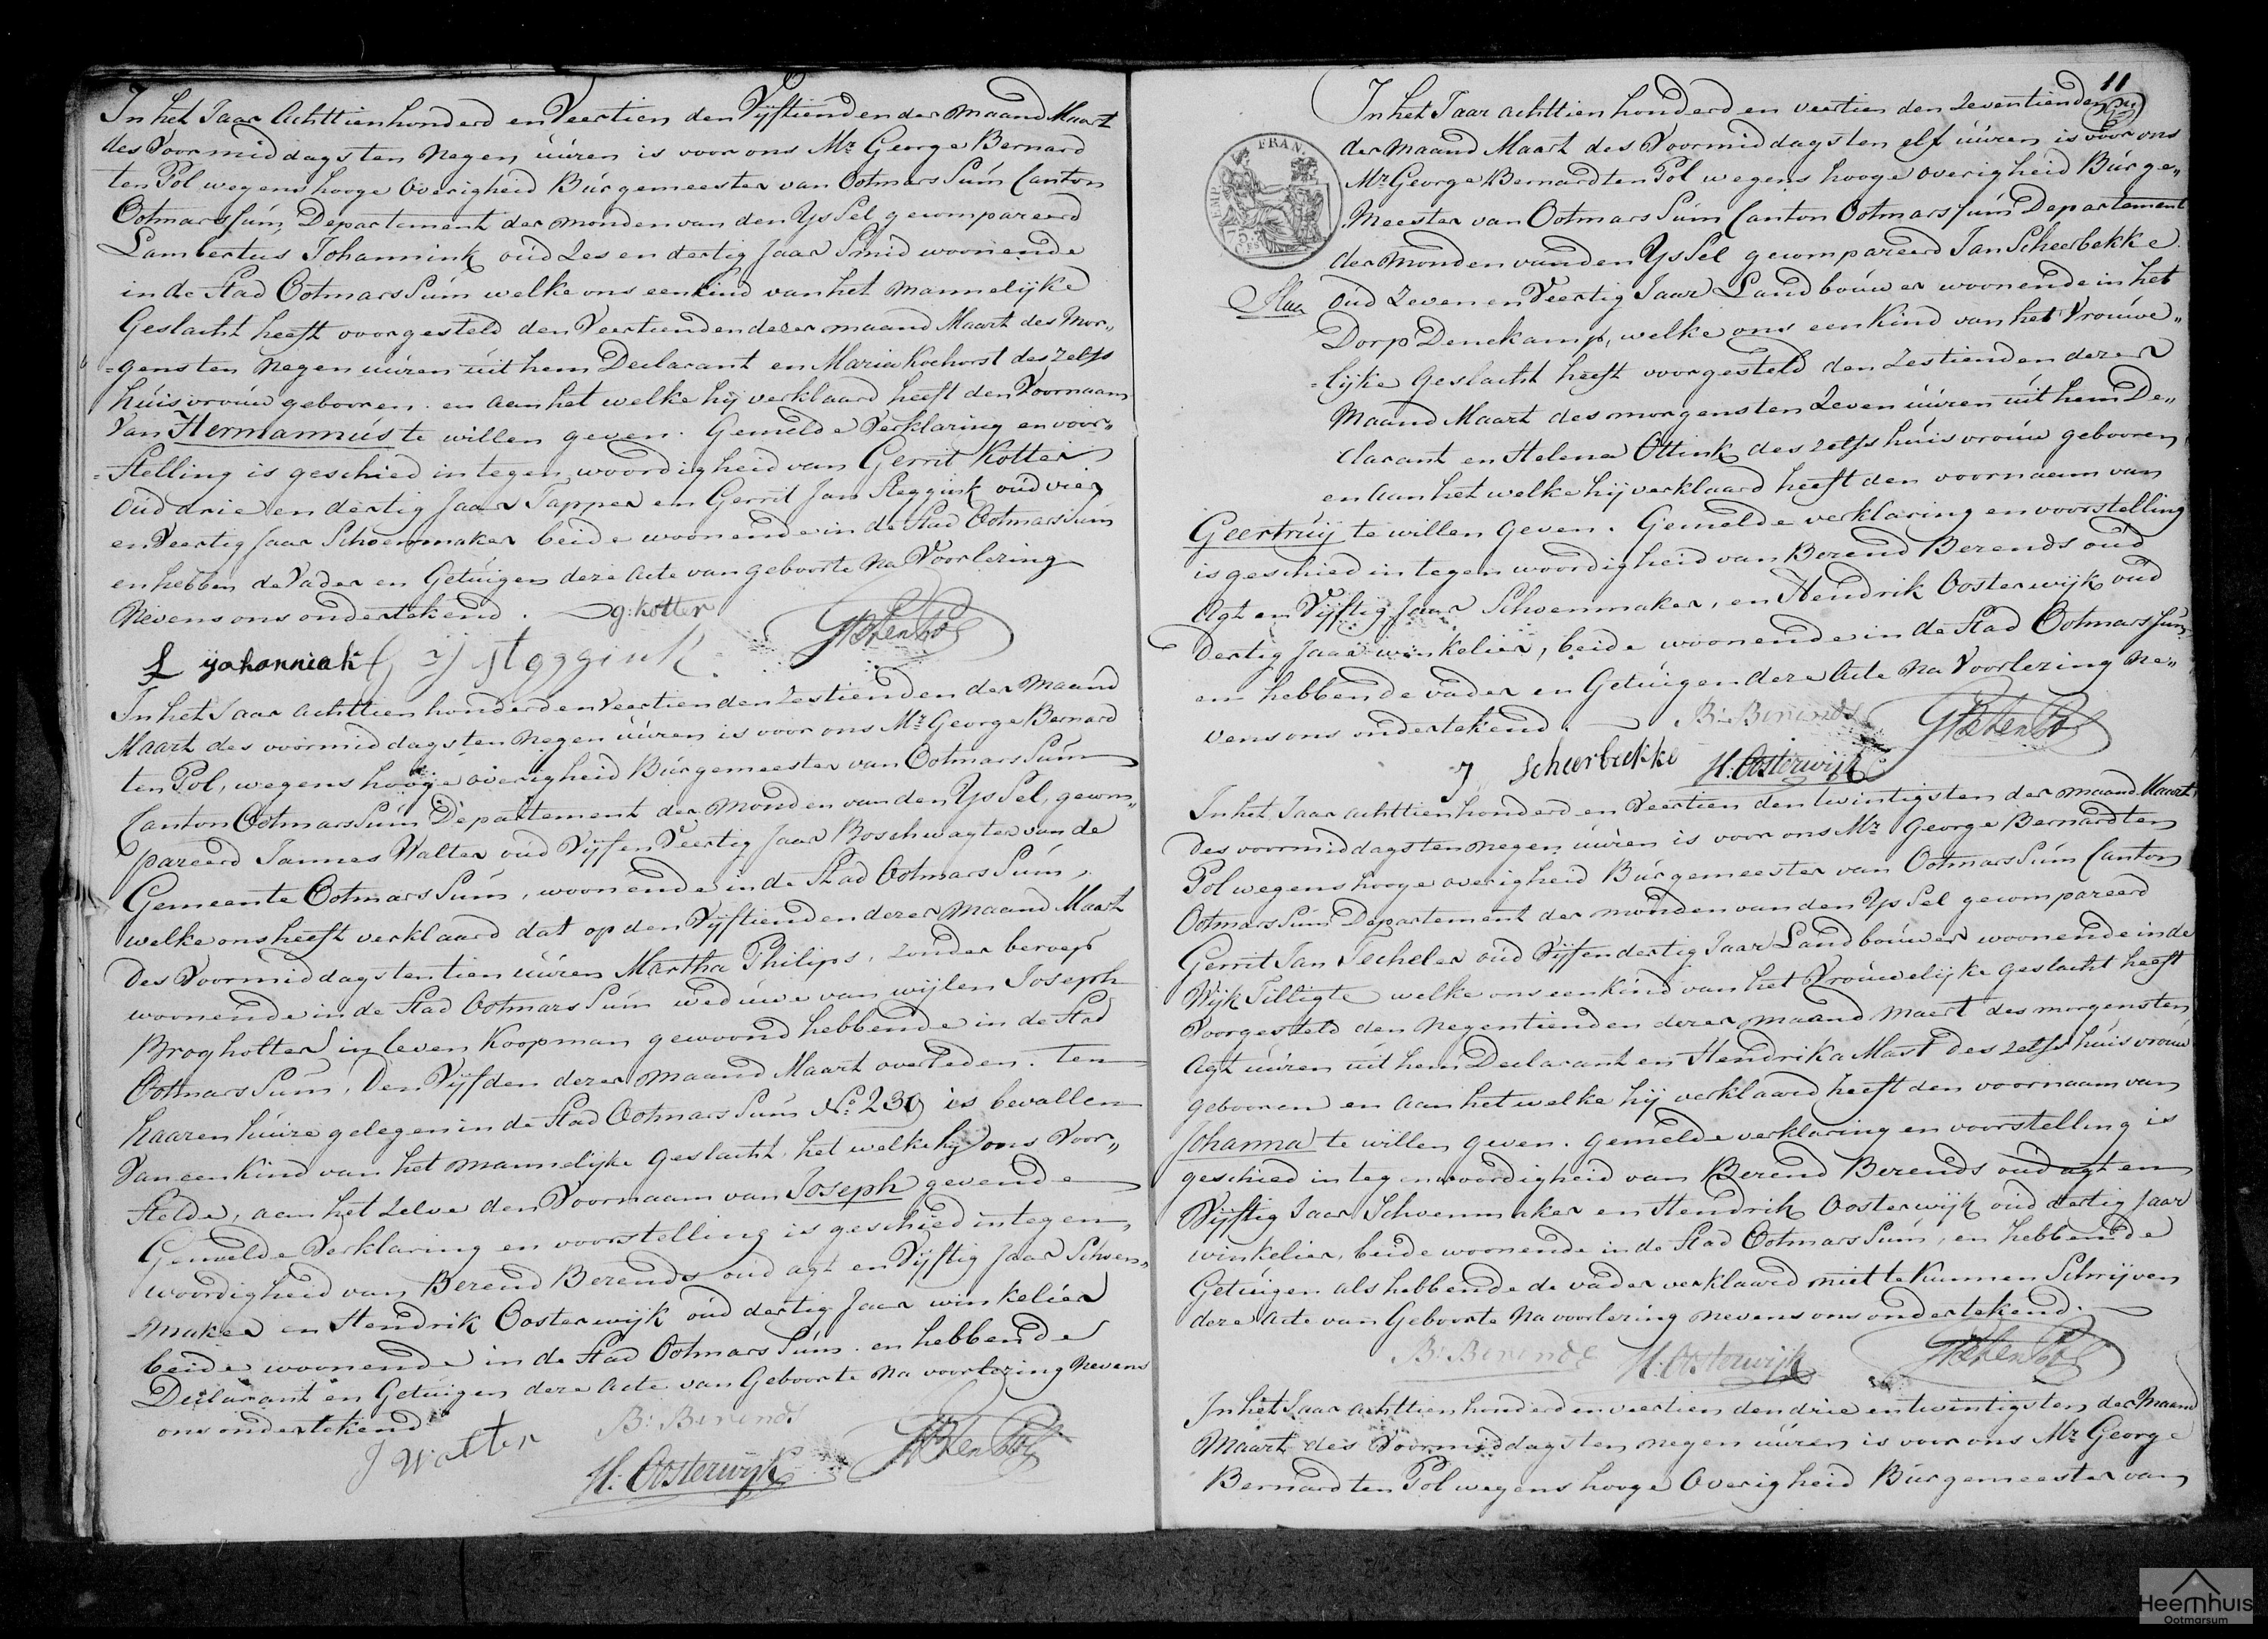 In het Jaar Achttienhonderd en Veertien den Vyftienden der maand Maart
des Voormiddags ten Negen uúren is voor ons Mr. George Bernard
ten Pol wegens hooge Overigheid Búrgemeester van OotmarsSúm Canton
OotmarsSúm, Departement der monden van den YsSel gecompareerd
Lambertús Johannink oúd Zes en dertig Jaar Smid woonende
in de Stad OotmarsSúm welke ons een kind van het mannelijke
Geslacht heeft voorgesteld den Veertienden dezer maand Maart des Mor„
=gens ten Negen uúren úit hem Declarant en Maria Kochorst deszelfs
húisvroúw gebooren. en aan het welke hij verklaard heeft den Voornaam
Van Hermannús te willen geven. Gemelde Verklaring en voor„
=Stelling is geschied in tegenwoordigheid van Gerrit Kotter
Oúd drie en dertig Jaar Tapper en Gerrit Jan Steggink oúd vier
en Veertig Jaar Schoenmaker beide woonende in de Stad OotmarsSúm
en hebben de Vader en Getúigen deze Acte van geboorte Na Voorlezing
Nevens ons ondertekend. g: kotter GB ten Pol
L yohannink G J steggink
In het Jaar achttien honderd en Veertien den Zestienden der maand
Maart des voormiddags ten Negen uúren is voor ons Mr. George Bernard
ten Pol, wegens hooge overigheid Búrgemeester van OotmarsSúm
Canton OotmarsSúm Departement der Monden van den YsSel, gecom„
pareerd Jannes Walter oúd Vijf en Veertig Jaar Boschwagter van de
Gemeente OotmarsSúm, woonende in de Stad OotmarsSúm,
welke ons heeft verklaard dat op den Vijftienden dezer maand Maart
des Voormiddags ten tien uúren Martha Philips, zonder beroep
woonende in de Stad OotmarsSúm wedúwe van wijlen Joseph
Brogholter in leven Koopman gewoond hebbende in de Stad
OotmarsSúm, Den Vijfden dezer maand Maart overleden. ten
haaren húize gelegen in de Stad OotmarsSúm No. 230 is bevallen
Van een Kind van het mannelijke Geslacht, het welke hij ons Voor„
Stelde, aan het zelve den Voornaam van Joseph gevende
Gemelde Verklaring en voorstelling is geschied in tegen
woordigheid van Berend Berends oúd agt en Vijftig Jaar Schoen„
maker en Hendrik Oosterwijk oúd dertig Jaar winkelier
beide woonende in de Stad OotmarsSúm. en hebbende
Declarant en Getúigen deze Acte van Geboorte Na voorlezing Nevens
ons ondertekend
J Walter B: Berends
H. Oosterwijk GB ten Pol
11
In het Jaar achttien honderd en veertien den Zeventienden
der maand Maart des Voormiddags ten elf uúren is voor ons
Mr. George Bernard ten Pol wegens hooge overigheid Búrge„
Meester van OotmarsSúm Canton OotmarsSúm Departement
der monden van den YsSel gecompareerd Jan Scheerbekke
Oúd Zeven en Veertig Jaar Landboúwer woonende in het
Dorp Denekamp, welke ons een Kind van het Vroúwe„
=lijke Geslacht heeft voorgesteld den Zestienden dezer
Maand Maart des morgens ten Zeven uúren úit hem De„
clarant en Helena Ottink deszelfs húisvroúw gebooren,
en aan het welke hij verklaard heeft den voornaam van
Geertruij te willen geven. Gemelde verklaring en voorstelling
is geschied in tegenwoordigheid van Berend Berends oúd
Agt en Vijftig Jaar Schoenmaker, en Hendrik Oosterwijk oúd
Dertig Jaar winkelier, beide woonende in de Stad OotmarsSúm,
en hebben de vader en Getúigen deze Acte Na Voorlezing Ne„
vens ons ondertekend. B: Berends GB ten Pol
J Scheerbekke H. Oosterwijk
In het Jaar achttien honderd en Veertien den twintigsten der maand Maart
des voormiddags ten negen uúren is voor ons Mr. George Bernard ten
Pol wegens hooge overigheid Búrgemeester van OotmarsSúm Canton
OotmarsSúm Departement der monden van den YsSel gecompareerd
Gerrit Jan Techeler oúd Vijf en dertig Jaar Landboúwer woonende in de
Wijk Tilligte welke ons een kind van het Vroúwelijke geslacht heeft
Voorgesteld den Negentienden dezer maand Maert des morgens ten
Agt uúren úit hem Declarant en Hendrika Mast deszelfs húisvroúw
gebooren en aan het welke hij verklaard heeft den voornaam van
Johanna te willen geven. gemelde verklaring en voorstelling is
geschied in tegenwoordigheid van Berend Berends oúd agt en
Vijftig Jaar Schoenmaker en Hendrik Oosterwijk oúd dertig Jaar
winkelier, beide woonende in de Stad OotmarsSúm, en hebbende
Getúigen als hebbende de vader verklaard niet te Kunnen Schrijven
deze Acte van Geboorte Na voorlezing nevens ons ondertekend.
B: Berends H. Oosterwijk GB ten Pol
In het Jaar achttien honderd en veertien den drie en twintigsten der Maand
Maart des Voormiddags ten negen uúren is voor ons Mr. George
Bernard ten Pol wegens hooge Overigheid Búrgemeester van
Heemhuis
Ootmarsum